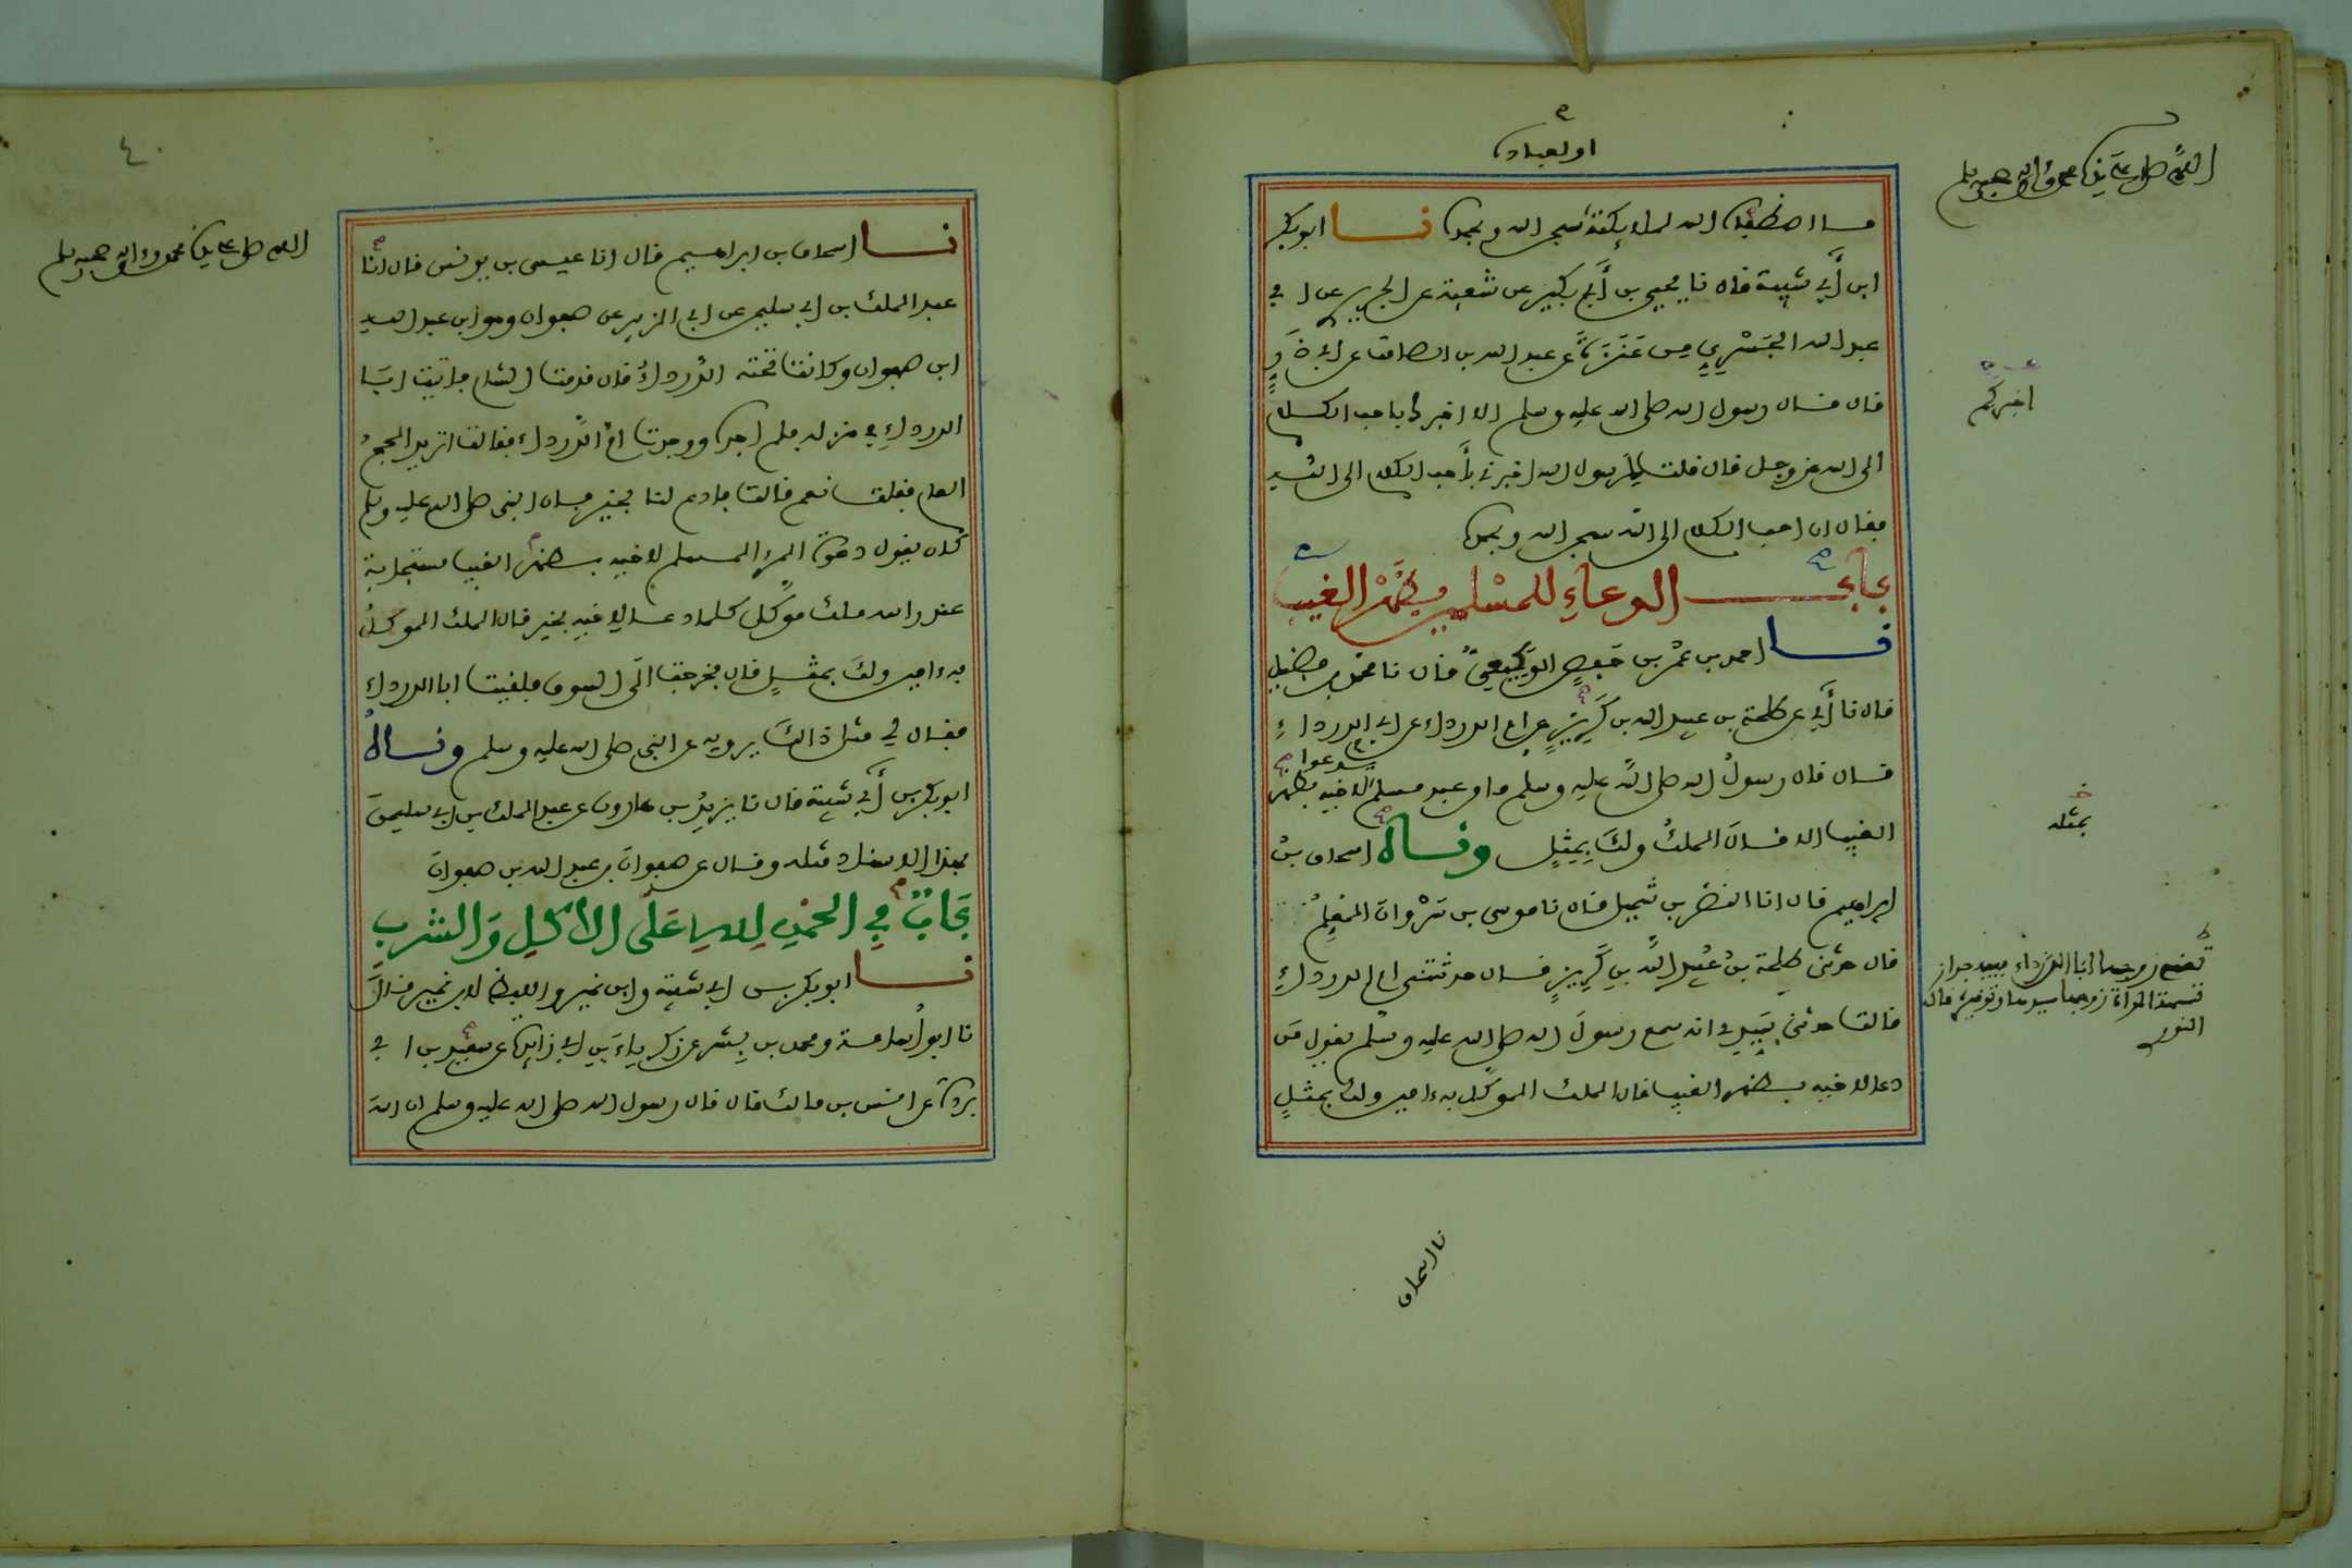 او لعباده
اللهم صل على سيدنا محمد وءاله وصحبه وسلم
ما اصطفى الله لملائكته سبحن الله وبحمده نا ابو بكر
ابن أبي شيبة قال نا يحيى بن أبي بكير عن شعبة عن الجريري عن ا بي
عبد الله الجَسْرِيِّ مِن عَنَزَةَ عن عبد الله بن الصامت عن ابي ذَرٍّ
قال قال رسول الله صلى الله عليه وسلم الا اخبرك باحب الكلام
اخبركم
الى الله عز وجل قال قلت يارسول الله اخبرني بأحب الكلام الى الله
فقال ان احب الكلام الى الله سبحن الله وبحمده
باب الدعاءِ للمسْلمين بظَهْر الغيب
نا احمد بن عُمَر بن حَفصٍ الوَكِيعيُّ قال نا محمد بن فضيل
قال نا أبي عن طلحة بن عبيد الله بن كَرِيزٍ عن ام الدرداء عن ابي الدرداءِ
قال قال رسولُ الله صلى الله عليه وسلم ما من عبد مسلم يدعوا لاخيه بظهر
الغيب الا قال الملكُ ولكَ بِمِثلٍ ونساهُ اسحاق بنُ
بمثله
ابراهيم قال انا النضر بن شميل قال نا موسى بن سَرْوانَ المُعَلِّمُ
قال حدثني طلحة بنُ عُبَيدِ اللهِ بنِ كَرِيزٍ قال حدثتني ام الدرداءِ
قالت حدثني سَيِّدِي انه سمع رسولَ الله صلى الله عليه وسلم يقول مَن
دعا لاخيه بظهر الغيب قال الملك الموكل به ءامين ولك بمثلٍ
تعني زوجها ابا الدرداء ففيه جواز
تسمية المرأة زوجها سيدها وتوقيره قاله
النووي
نا اسحاق
٤٠
اللهم صل على سيدنا محمد وءاله وصحبه وسلم
نا اسحاق بن ابراهيم قال انا عيسى بن يونس قال نا
عبد الملك بن ابي سليمن عن ابي الزبير عن صفوان وهو ابن عبد الله
ابن صفوان وكانت تحته الدرداءُ قال قدمت الشام فاتيت ابَا
الدرداءِ في منزله فلم اجده ووجدت امَّ الدرداء فقالت اتريد الحجَّ
العام فقلت نعم قالت فادع لنا بخير فان النبي صلى الله عليه وسلم
كان يقول دعوة المرء المسلم لاخيه بظهر الغيب مستجابة
عند راسه ملك موكل كلما دعا لاخيه بخير قال الملك الموكلُ
به ءامين ولكَ بمثلٍ قال فخرجت الى السوق فلقيت ابا الدرداءِ
فقال لي مثل ذالكَ يرويه عن النبي صلى الله عليه وسلم ونساهُ
ابو بكر بن أبي شيبة قال نا يزيدُ بن هارون عن عبد الملك بن ابي سليمنَ
بهذا الاسناد مثله وقال عن صفوانَ بن عبد الله بن صفوانَ
بَابٌ في الحمْدِ لله عَلَى الاكْلِ وَالشربِ
نا ابو بكر بن ابي شيبة وابن نمير واللفظ لابن نمير قالَا
نا ابو أسامة ومحمد بن بِشر عن زكرياءَ بنِ ابي زائدة عن سعيد بن ا بي
بردة عن انس بن مالك قال قال رسول الله صلى الله عليه وسلم ان اللهَ